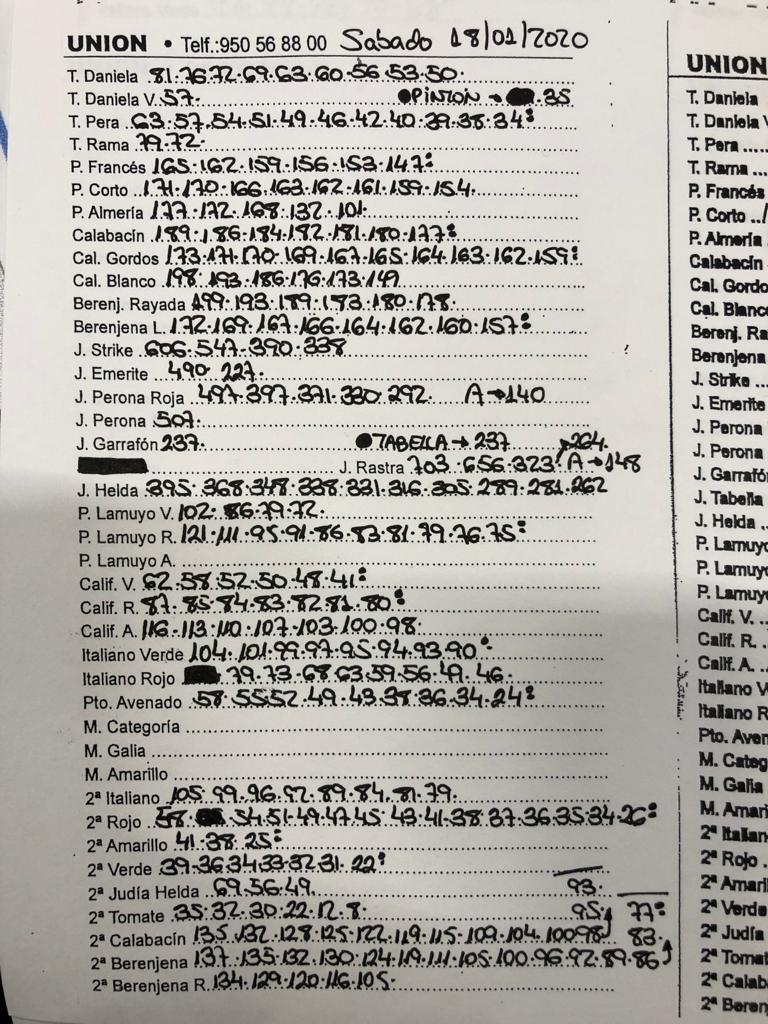 UNION • Telf.:950 56 88 00 Sabado 18/01/2020
T. Daniela 81.76.72.69.63.60.56.53.50.
T. Daniela V. 57. PINTON → .35
T. Pera 63.57.54.51.49.46.42.40.39.38.34:
T. Rama 79.72.
P. Francés 165.162.159.156.153.147:
P. Corto 171.170.166.163.162.161.159.154.
P. Almería 177.172.168.132.101.
Calabacín 189.186.184.182.181.180.177:
Cal. Gordos 173.171.170.169.167.165.164.163.162.159:
Cal. Blanco 198.193.186.176.173.149
Berenj. Rayada 199.193.189.183.180.178.
Berenjena L. 172.169.167.166.164.162.160.157:
J. Strike 606.547.390.338
J. Emerite 490.227.
J. Perona Roja 497.397.371.330.292. A→140
J. Perona 507.
J. Garrafón 237. TABELLA → 237 264.
J. Rastra 703.656.323! A→148
J. Helda 395.368.348.338.331.316.305.289.281.262
P. Lamuyo V. 102.86.79.72.
P. Lamuyo R. 121.111.95.91.86.83.81.79.76.75:
P. Lamuyo A.
Calif. V. 62.58.52.50.48.41:
Calif. R. 87.85.84.83.82.81.80:
Calif. A. 116.113.110.107.103.100.98.
Italiano Verde 104.101.99.97.95.94.93.90:
Italiano Rojo 79.73.68.63.59.56.49.46.
Pto. Avenado 58.55.52.49.43.38.36.34.24:
M. Categoría
M. Galia
M. Amarillo
2ª Italiano 105.99.96.92.89.84.81.79.
2ª Rojo 58. 54.51.49.47.45.43.41.38.37.36.35.34.26:
2ª Amarillo 41.38.25:
2ª Verde 39.36.34.33.32.31.22:
2ª Judía Helda 69.56.49. 93.
2ª Tomate 35.32.30.22.12.8. 95 77:
2ª Calabacín 135.132.128.125.122.119.115.109.104.100.98 83.
2ª Berenjena 137.135.132.130.124.119.111.105.100.96.92.89.86
2ª Berenjena R. 134.129.120.116.105.
UNION
T. Daniela
T. Daniela
T. Pera
T. Rama
P. Francés
P. Corto
P. Almería
Calabacín
Cal. Gordo
Cal. Blanc
Berenj. Ra
Berenjena
J. Strike
J. Emerite
J. Perona
J. Perona
J. Garrafó
J. Tabella
J. Helda
P. Lamuyo
P. Lamuyo
P. Lamuyo
Calif. V.
Calif. R.
Calif. A.
Italiano V
Italiano R
Pto. Aven
M. Categ
M. Galia
M. Amari
2ª Italian
2ª Rojo
2ª Amaril
2ª Verde
2ª Judía
2ª Tomat
2ª Calab
2ª Beren